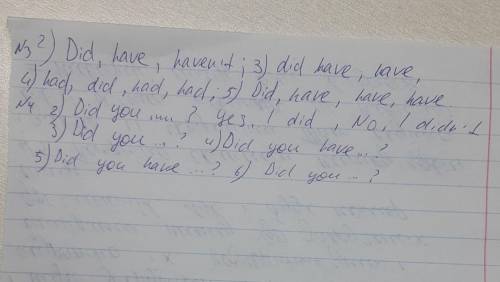 №3 2) Did, have, haven't; 3) did have, have,
4) had, did, had, had; 5) Did, have, have, have
№4 2) Did you ..... ? Yes, I did, No, I didn't
3) Did you ... ? 4) Did you have ..?
5) Did you have ...? 6) Did you ... ?